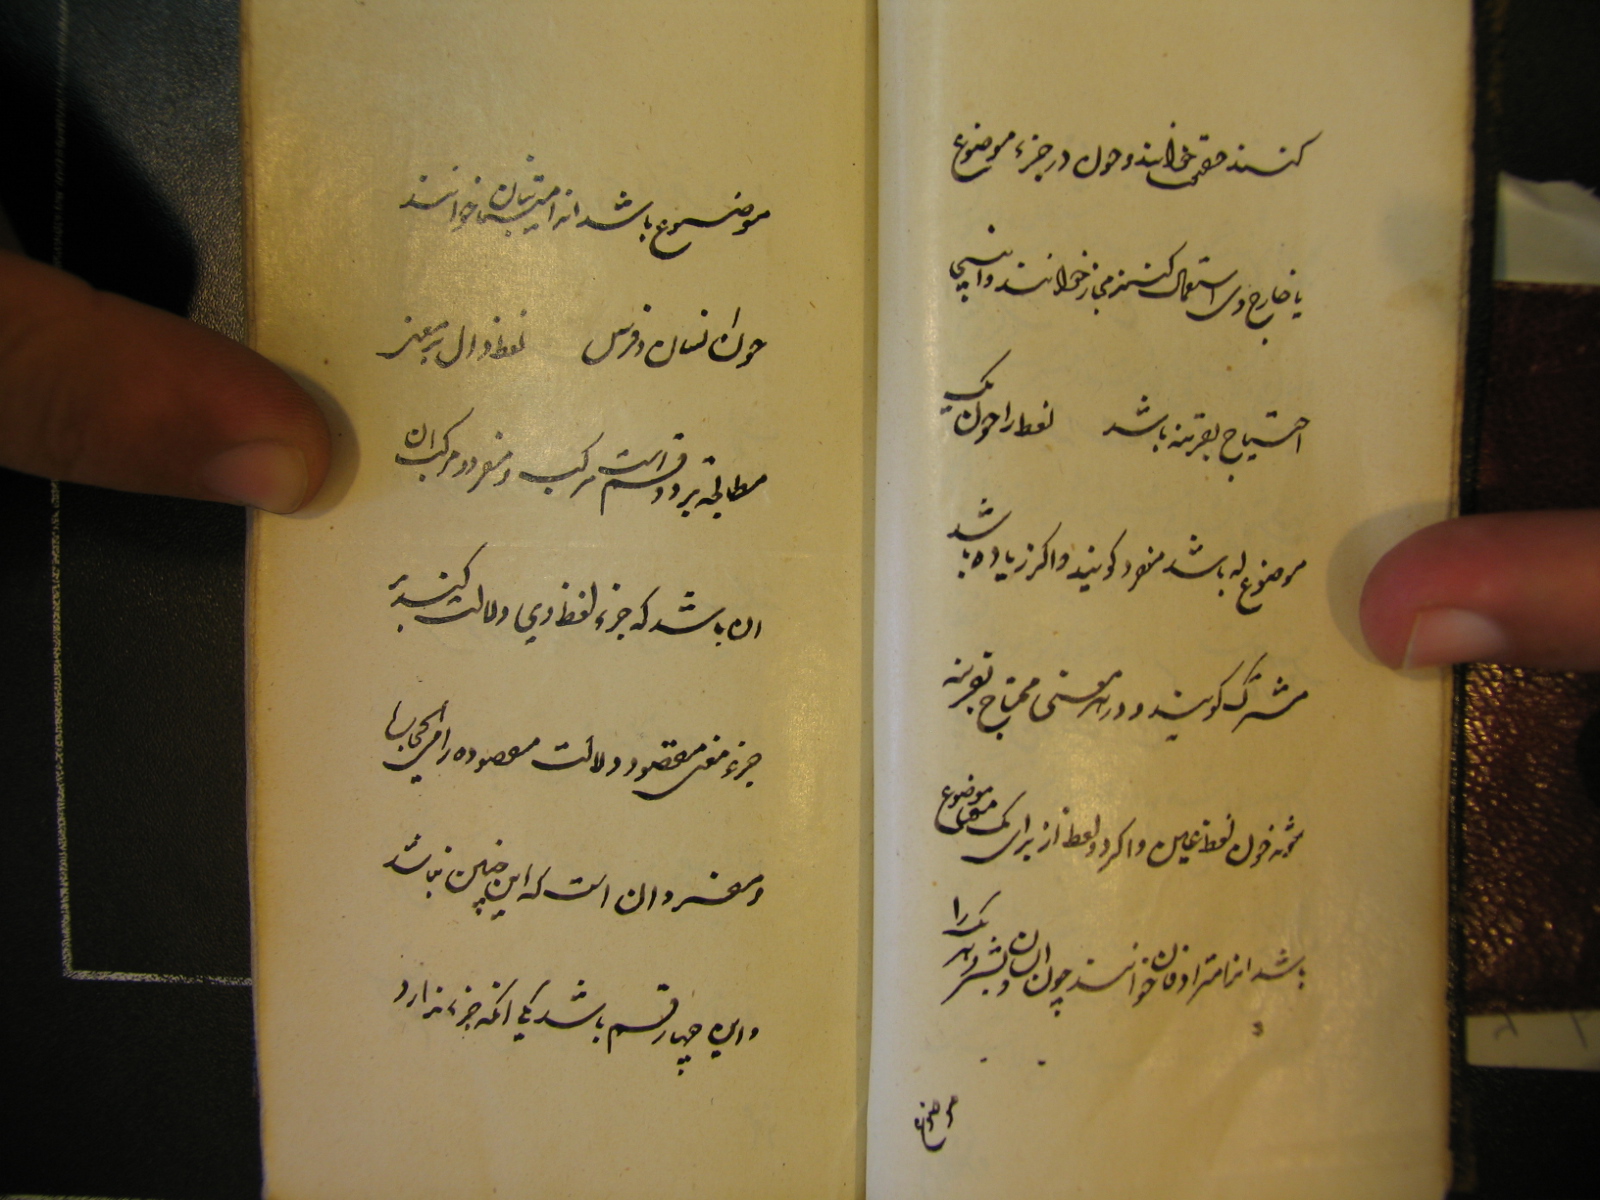 کنند حقیقی خوانند و چون در جزء موضوع
یا خارج وی استعمال کنند مجاز خوانند و اینجا
احتیاج بقرینه باشد لفظ را چون یک
موضوع له باشد مفرد کویند و اکر زیاده باشد
مشترک کویند و در هر معنی محتاج بقرینه
شوند چون لفظ عین و اکر دو لفظ از برای یک معنی موضوع
باشد انها مترادفان خوانند چون انسان و بشر هر یک را
موضوع
موضوع باشد انه متباینان خوانند
چون انسان و فرس لفظ دال بر معنی
مطابقة بر دو قسم است مرکب و مفرد و مرکب ان
ان باشد که جزء لفظ وی دلالت کند بر
جزء معنی مقصود دلالت مقصوده رامی الحجارها
و مفرد ان است که این چنین نباشد
و این چهار قسم باشد یکی انکه جزء ندارد